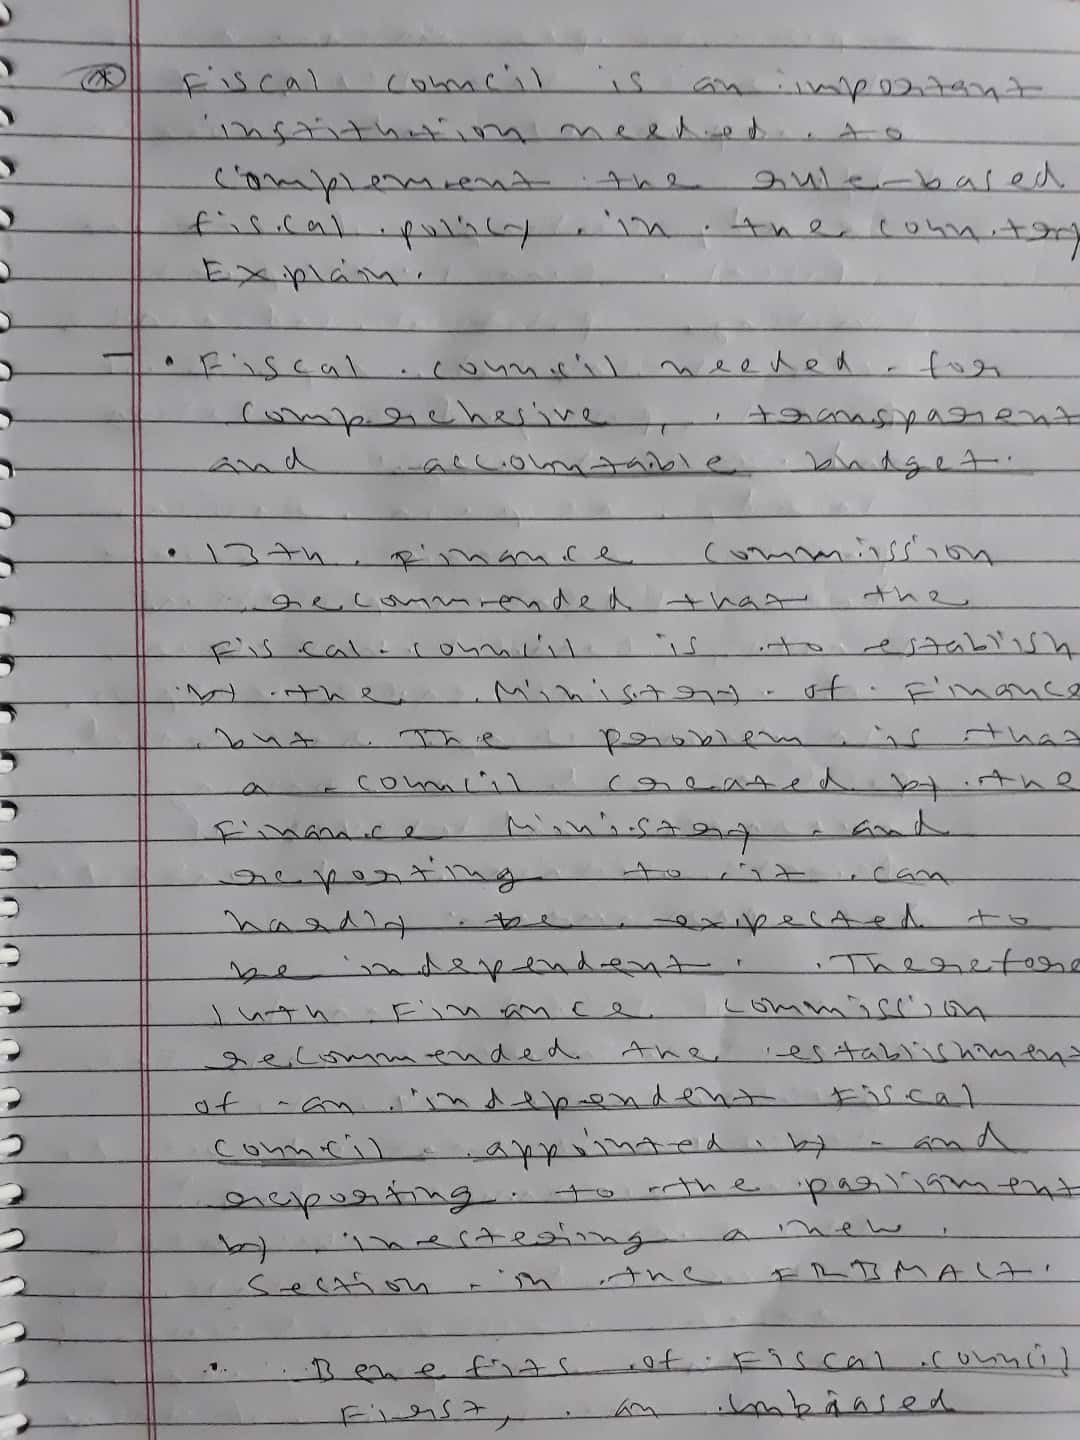 * Fiscal council is an important
institution needed to
complement the rule-based
fiscal policy in the country
Explain.
- • Fiscal council needed for
comprehesive, transparent
and accountable budget.
• 13th Finance Commission
recommended that the
Fiscal council is to establish
by the Ministry of Finance
but The problem is that
a council created by the
Finance Ministry and
reporting to it can
hardly be expected to
be independent. Therefore
14th Finance Commission
recommended the establishment
of an independent Fiscal
Council appointed by and
reporting to the parliament
by inestering a new
Section in the FRBM Act.
• Benefits of Fiscal council
First, an unbiased